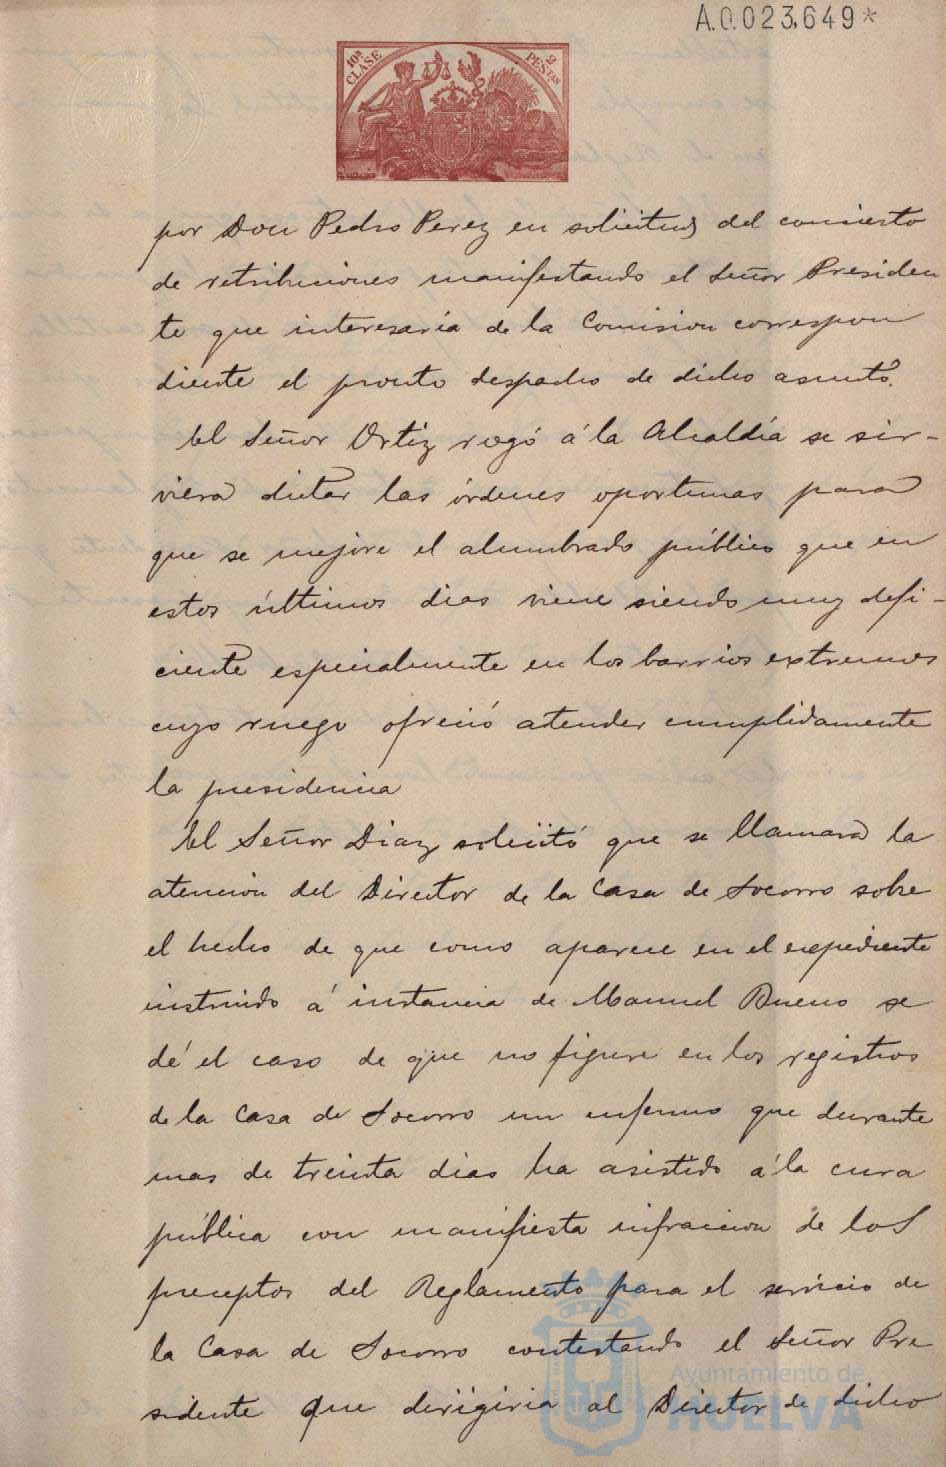 A.0.023,649*
10ª CLASE
2 PESTAS
por Don Pedro Perez en solicitud del concierto
de retribuciones manifestando el Señor Presiden
te que interesaría de la Comision correspon
diente el pronto despacho de dicho asunto.
El Señor Ortiz rogó á la Alcaldía se sir-
viera dictar las órdenes oportunas para
que se mejore el alumbrado público que en
estos últimos dias viene siendo muy defi-
ciente especialmente en los barrios extremos
cuyo ruego ofreció atender cumplidamente
la presidencia
El Señor Diaz solicitó que se llamara la
atencion del Director de la Casa de Socorro sobre
el hecho de que como aparece en el expediente
instruido á instancia de Manuel Bueno se
dé el caso de que no figure en los registros
de la Casa de Socorro un enfermo que durante
mas de treinta dias ha asistido á la cura
pública con manifiesta infraccion de los
preceptos del Reglamento para el servicio de
la Casa de Socorro contestando el Señor Pre
sidente que dirigiria al Director de dicho
Ayuntamiento de
HUELVA